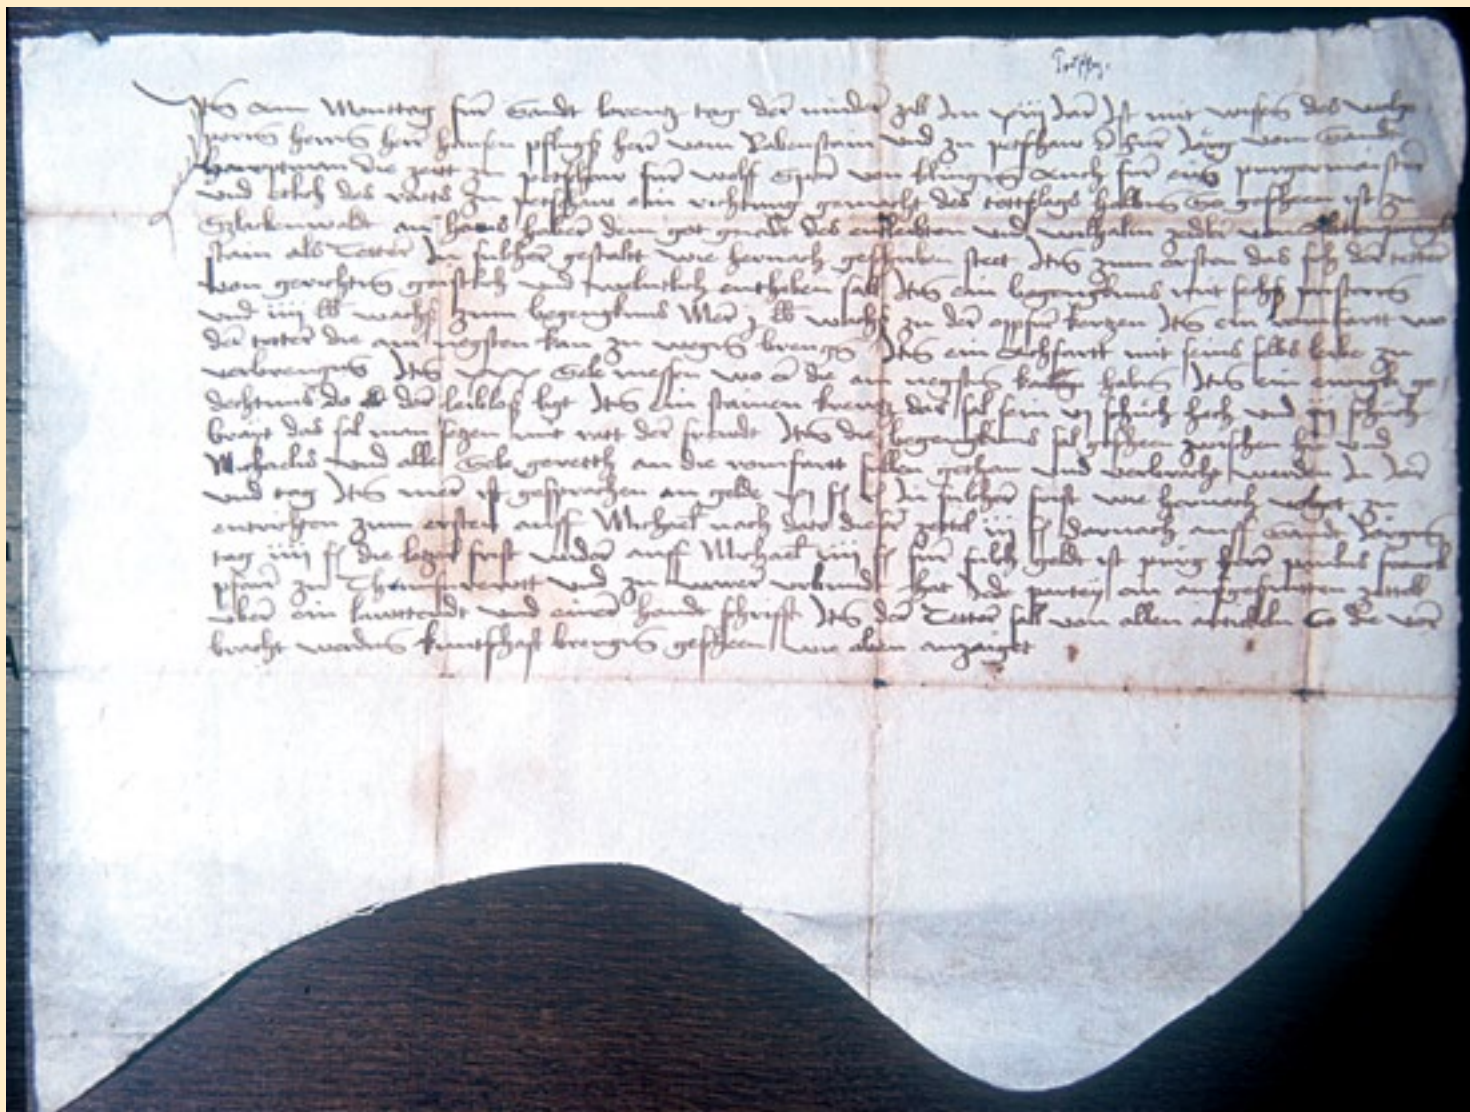 Itm am Monttag für Sandt lorentz tag der minder zal Jm xiij Jar Ist mit wissen des wolge
pornn hernn herr hansen pflugß herr vom Rabenstain und zu petschaw Jorg vom Sandt
hauptman die zeitt zu petschaw für wolff von auch für eim purgermeister
und etlich des ratts zu petschaw ein richtung gemacht des tottslags halbnn So gescheen ist zu
an hans haber dem got gnedt des entleibten und wilhalm zedler vom
stain als Tetter In sulcher gestalt wie hernach geschriben stett Itm zum ersten das sich der tetter
von gerichten geistlich und weltlich entheben sall Itm ein begengknus mit sechß pristernn
und iiij lb wachß zum begengknus Mer j lb wachß zu der kertzen Itm ein romfartt wo
der tetter die am negsten kan zu wegen brengen Itm ein Achfartt mit seins selbs leibe zu
verbrengen Itm xxx Sele messen wo er die am negsten haben Itm ein ewigk ge
dechtnus do der leibloß ligt Itm ein stainen kreutz das sal sein vj schuch hoch und iij schuch
brayt das sal man setzen mit ratt der freundt Itm die begengknus sal gescheen zwischen hin und
Michaelis und alle Sele gerett an die romfartt sollen gethan und verbracht werden In Jar
und tag Itm mer ist gesprochen an gelde In sulcher frist wie hernach volget zu
entrichten zum ersten auff Michael nach dato dieser zettel iiij darnach auff Sandt Jorgen
tag iiij die letzt frist wider auff Michael iiij für sulch geldt ist purg herr paulus
pfarrer zu und zu verbunden hat Jde partey ein aufgeschnitten zettell
uber ein lauttendt und einer handt schrifft Itm der Tetter sall von allen artickeln So die ver
bracht werden kuntschaft brengen gescheen wie oben anzaiget